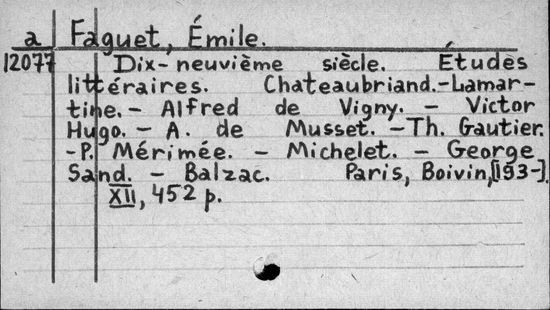 a Faguet, Émile.
12077 Dix-neuvième siècle. Études
littéraires. Chateaubriand.-Lamar-
tine.- Alfred de Vigny. - Victor
Hugo. - A. de Musset. -Th. Gautier.
-P. Mérimée. - Michelet. - George
Sand. - Balzac. Paris, Boivin,[193-].
XII, 452 p.